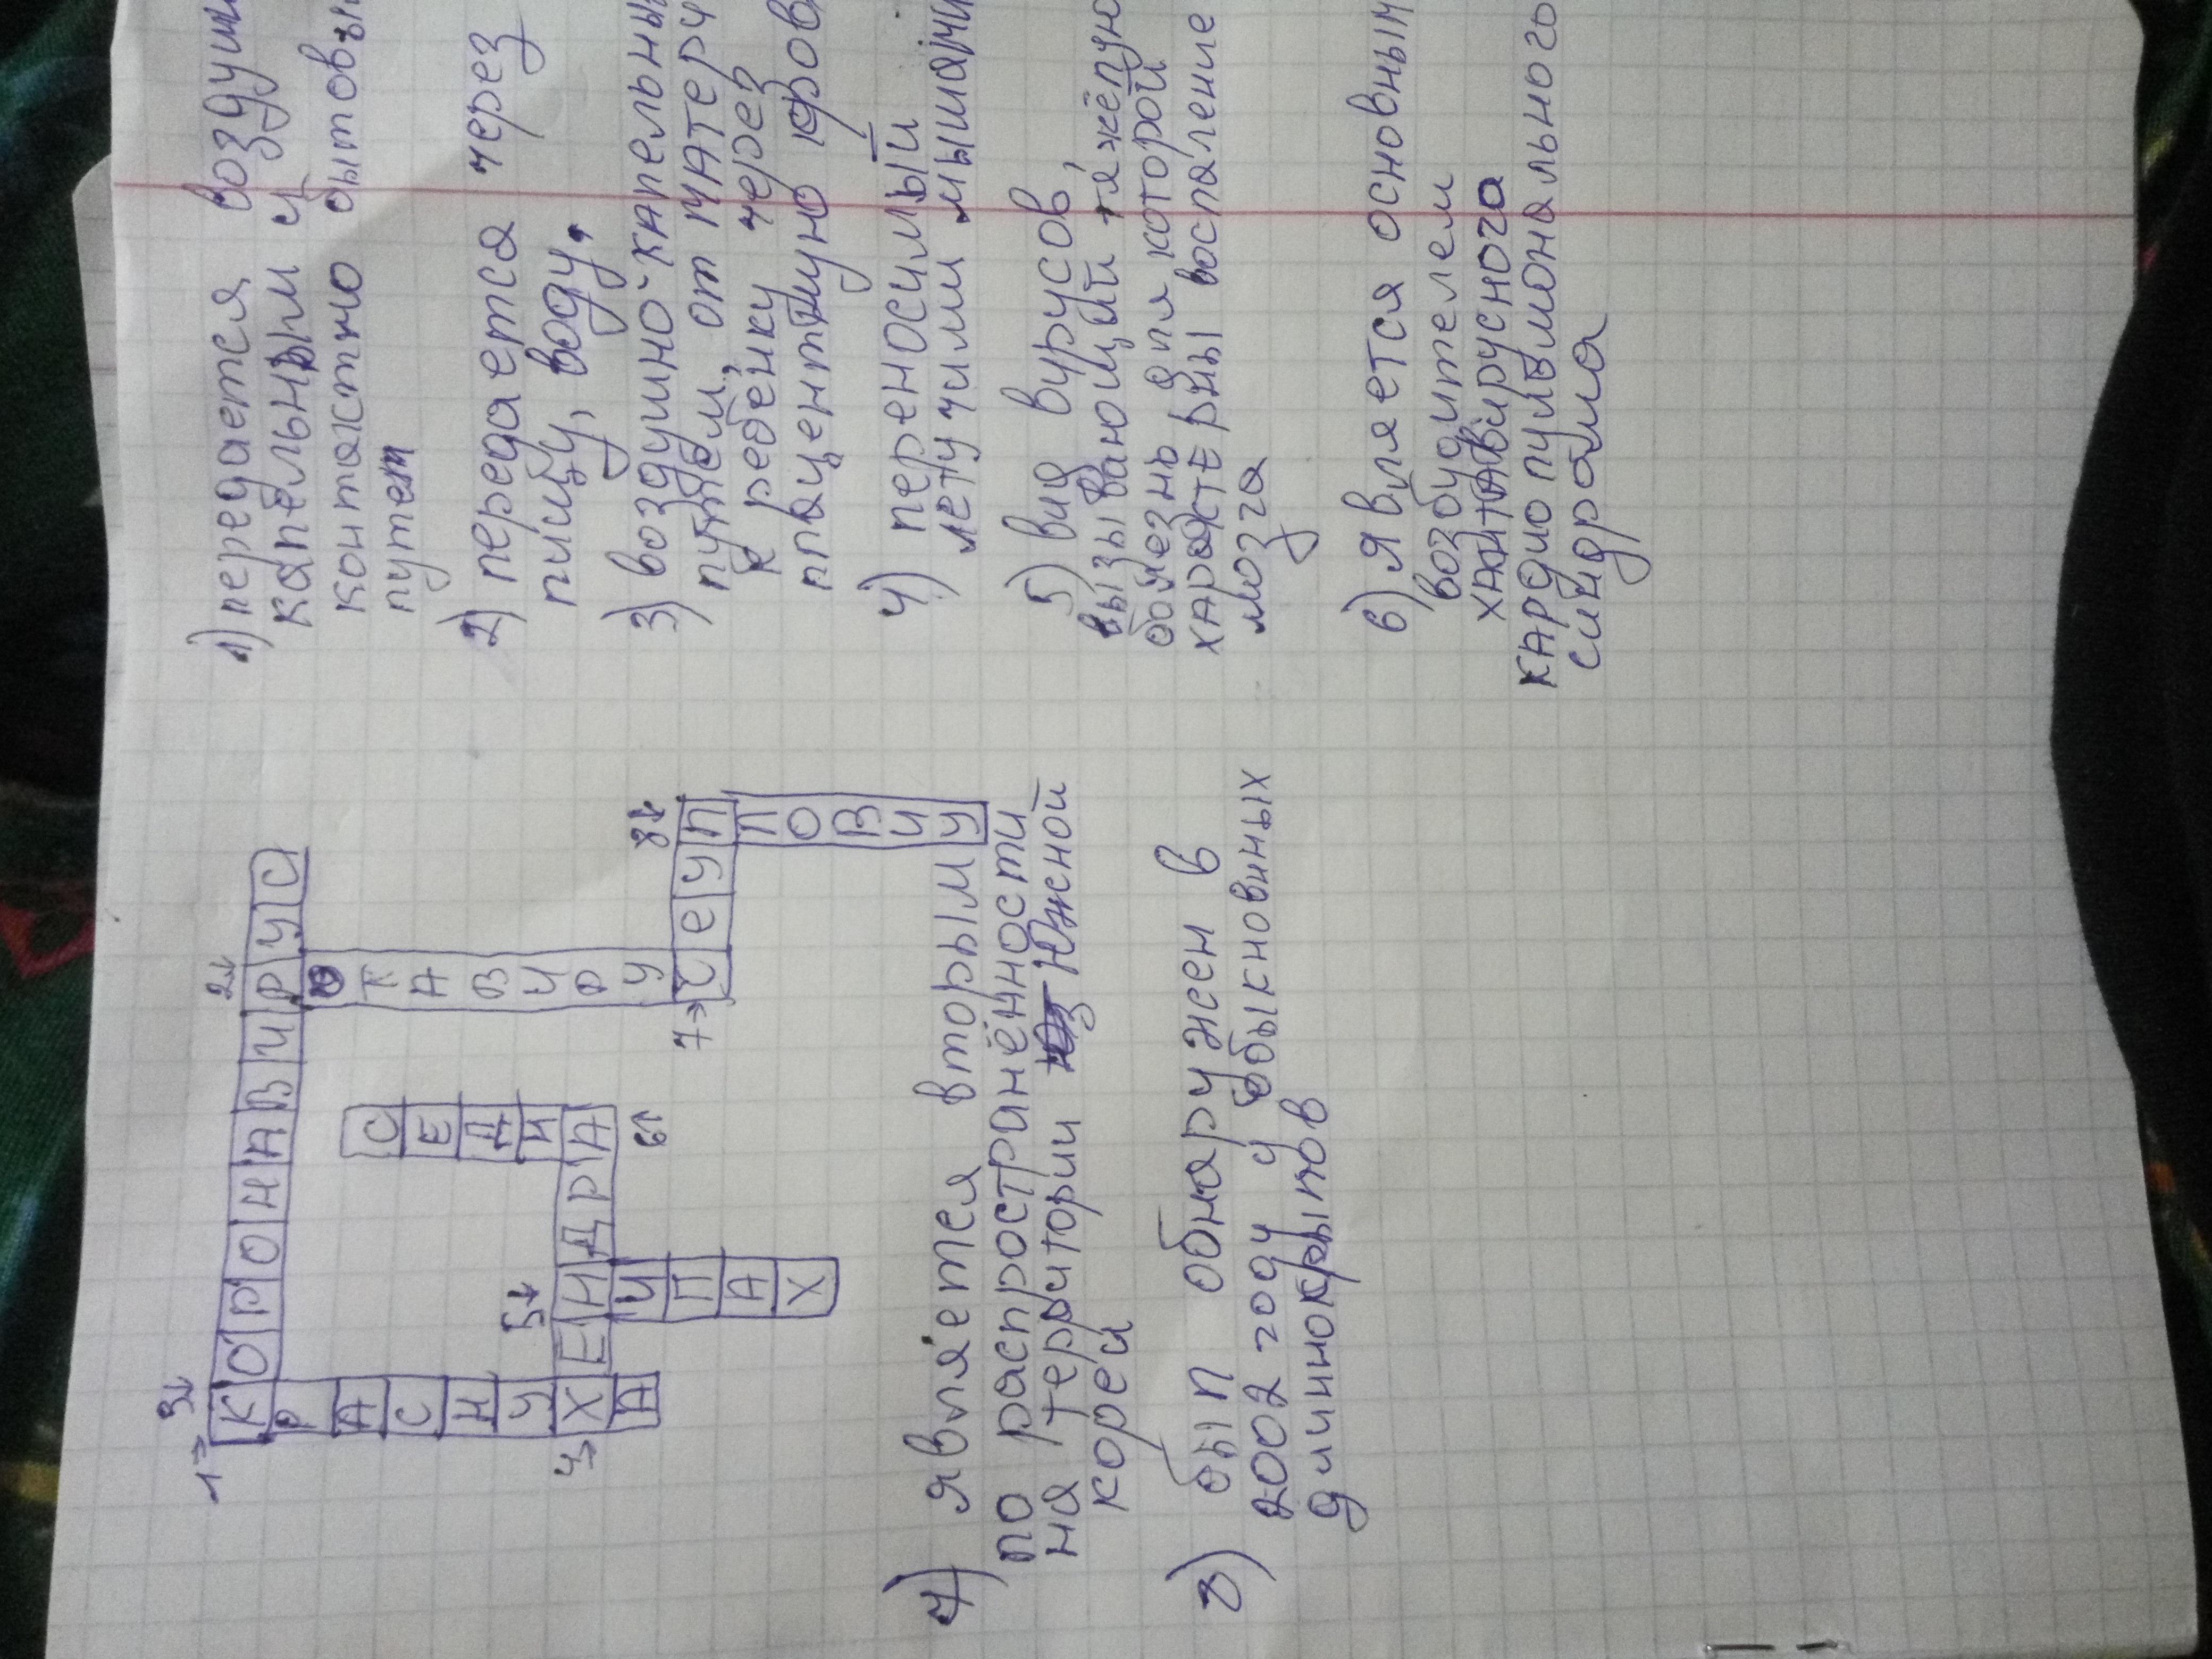 3↓ 2↓
1→ К О Р О Н А В И Р У С
Р О
А С Т
С Е А
Н Д В
У 5↓ Н И
4→ Х Е Н Д Р А Р
А И 6↑ У 8↓
П 7→ С Е У Л
А Л
Х О
В
И
У
7) является вторым
по распространённости
на территории Южной
кореи
8) был обнаружен в
2002 году у обыкновинных
длиннокрылов
1) передается воздушн
капельным и
контактно бытовы
путем
2) передается через
пищу, воду.
3) воздушно-капельны
путём, от матери
к ребёнку через
плацентную кров
4) переносимый
летучими мышами
5) вид вурусов,
вызывающий тяжёлую
болезнь для которой
характерны воспаление
мозга
6) является основным
возбудителем
хантавирусного
кардиопульмонального
синдрома